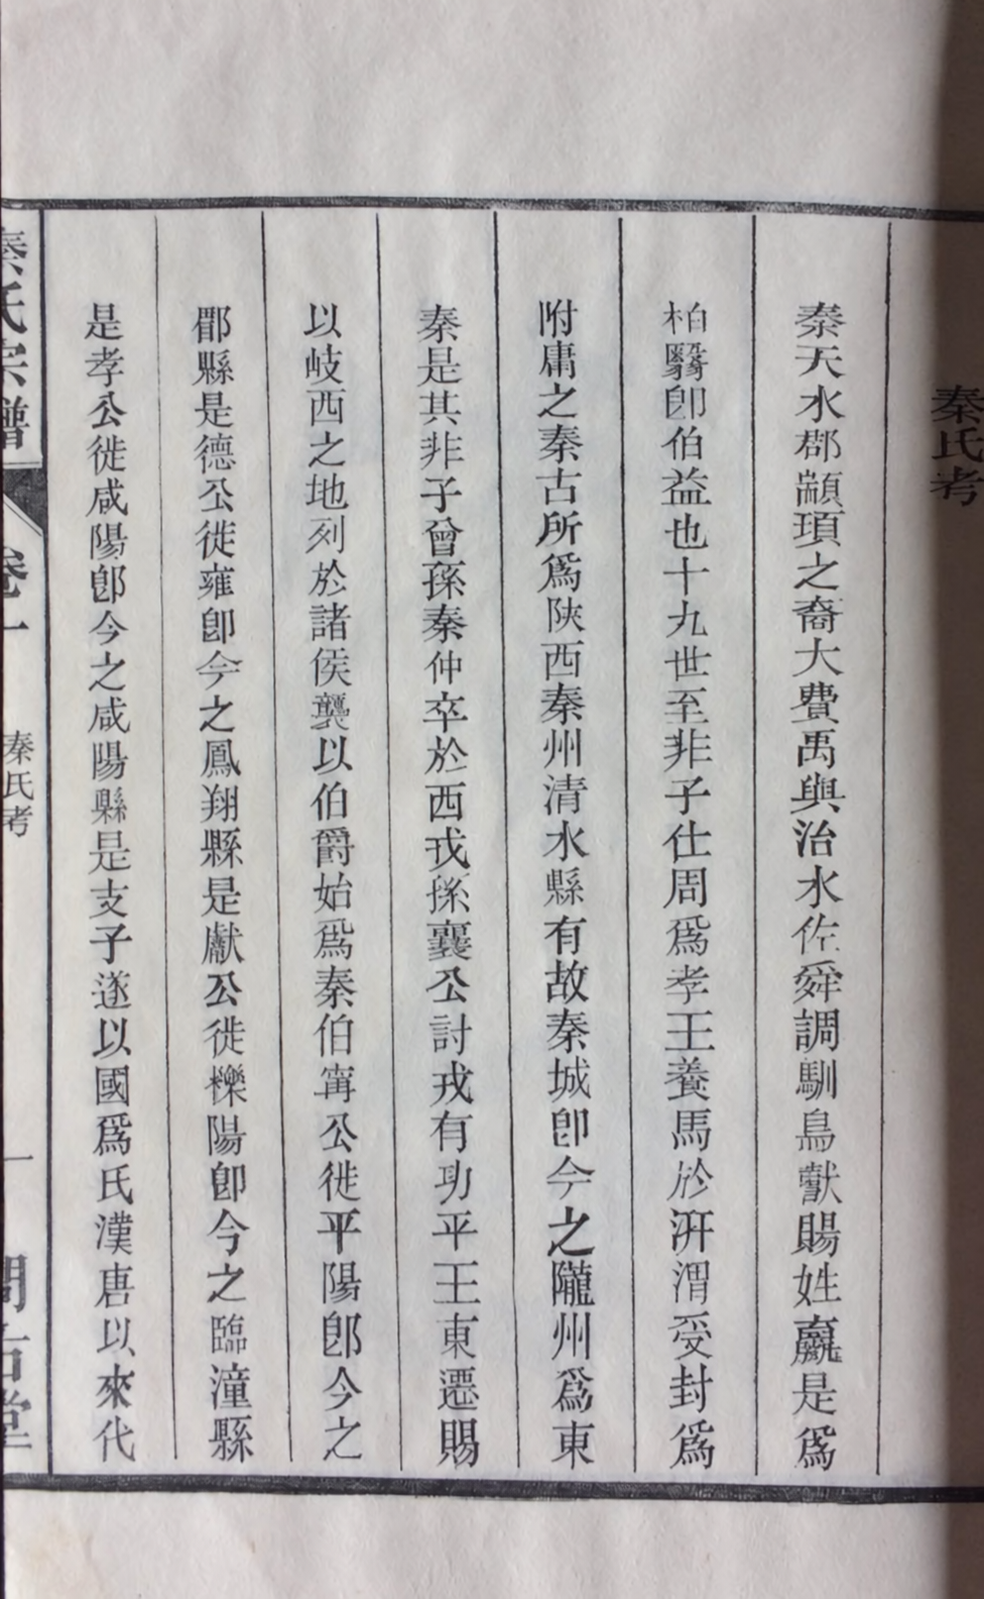 秦氏考
秦天水郡顓頊之裔大費禹與治水佐舜調馴鳥獸賜姓嬴是爲
柏翳卽伯益也十九世至非子仕周爲孝王養馬於汧渭受封爲
附庸之秦古所爲陝西秦州清水縣有故秦城卽今之隴州爲東
秦是其非子曾孫秦仲卒於西戎孫襄公討戎有功平王東遷賜
以岐西之地列於諸侯襲以伯爵始爲秦伯甯公徙平陽郎今之
郿縣是德公徙雍卽今之鳳翔縣是獻公徙櫟陽卽今之臨潼縣
是孝公徙咸陽郎今之咸陽縣是支子遂以國爲氏漢唐以來代
秦氏宗譜
卷一
秦氏考
一